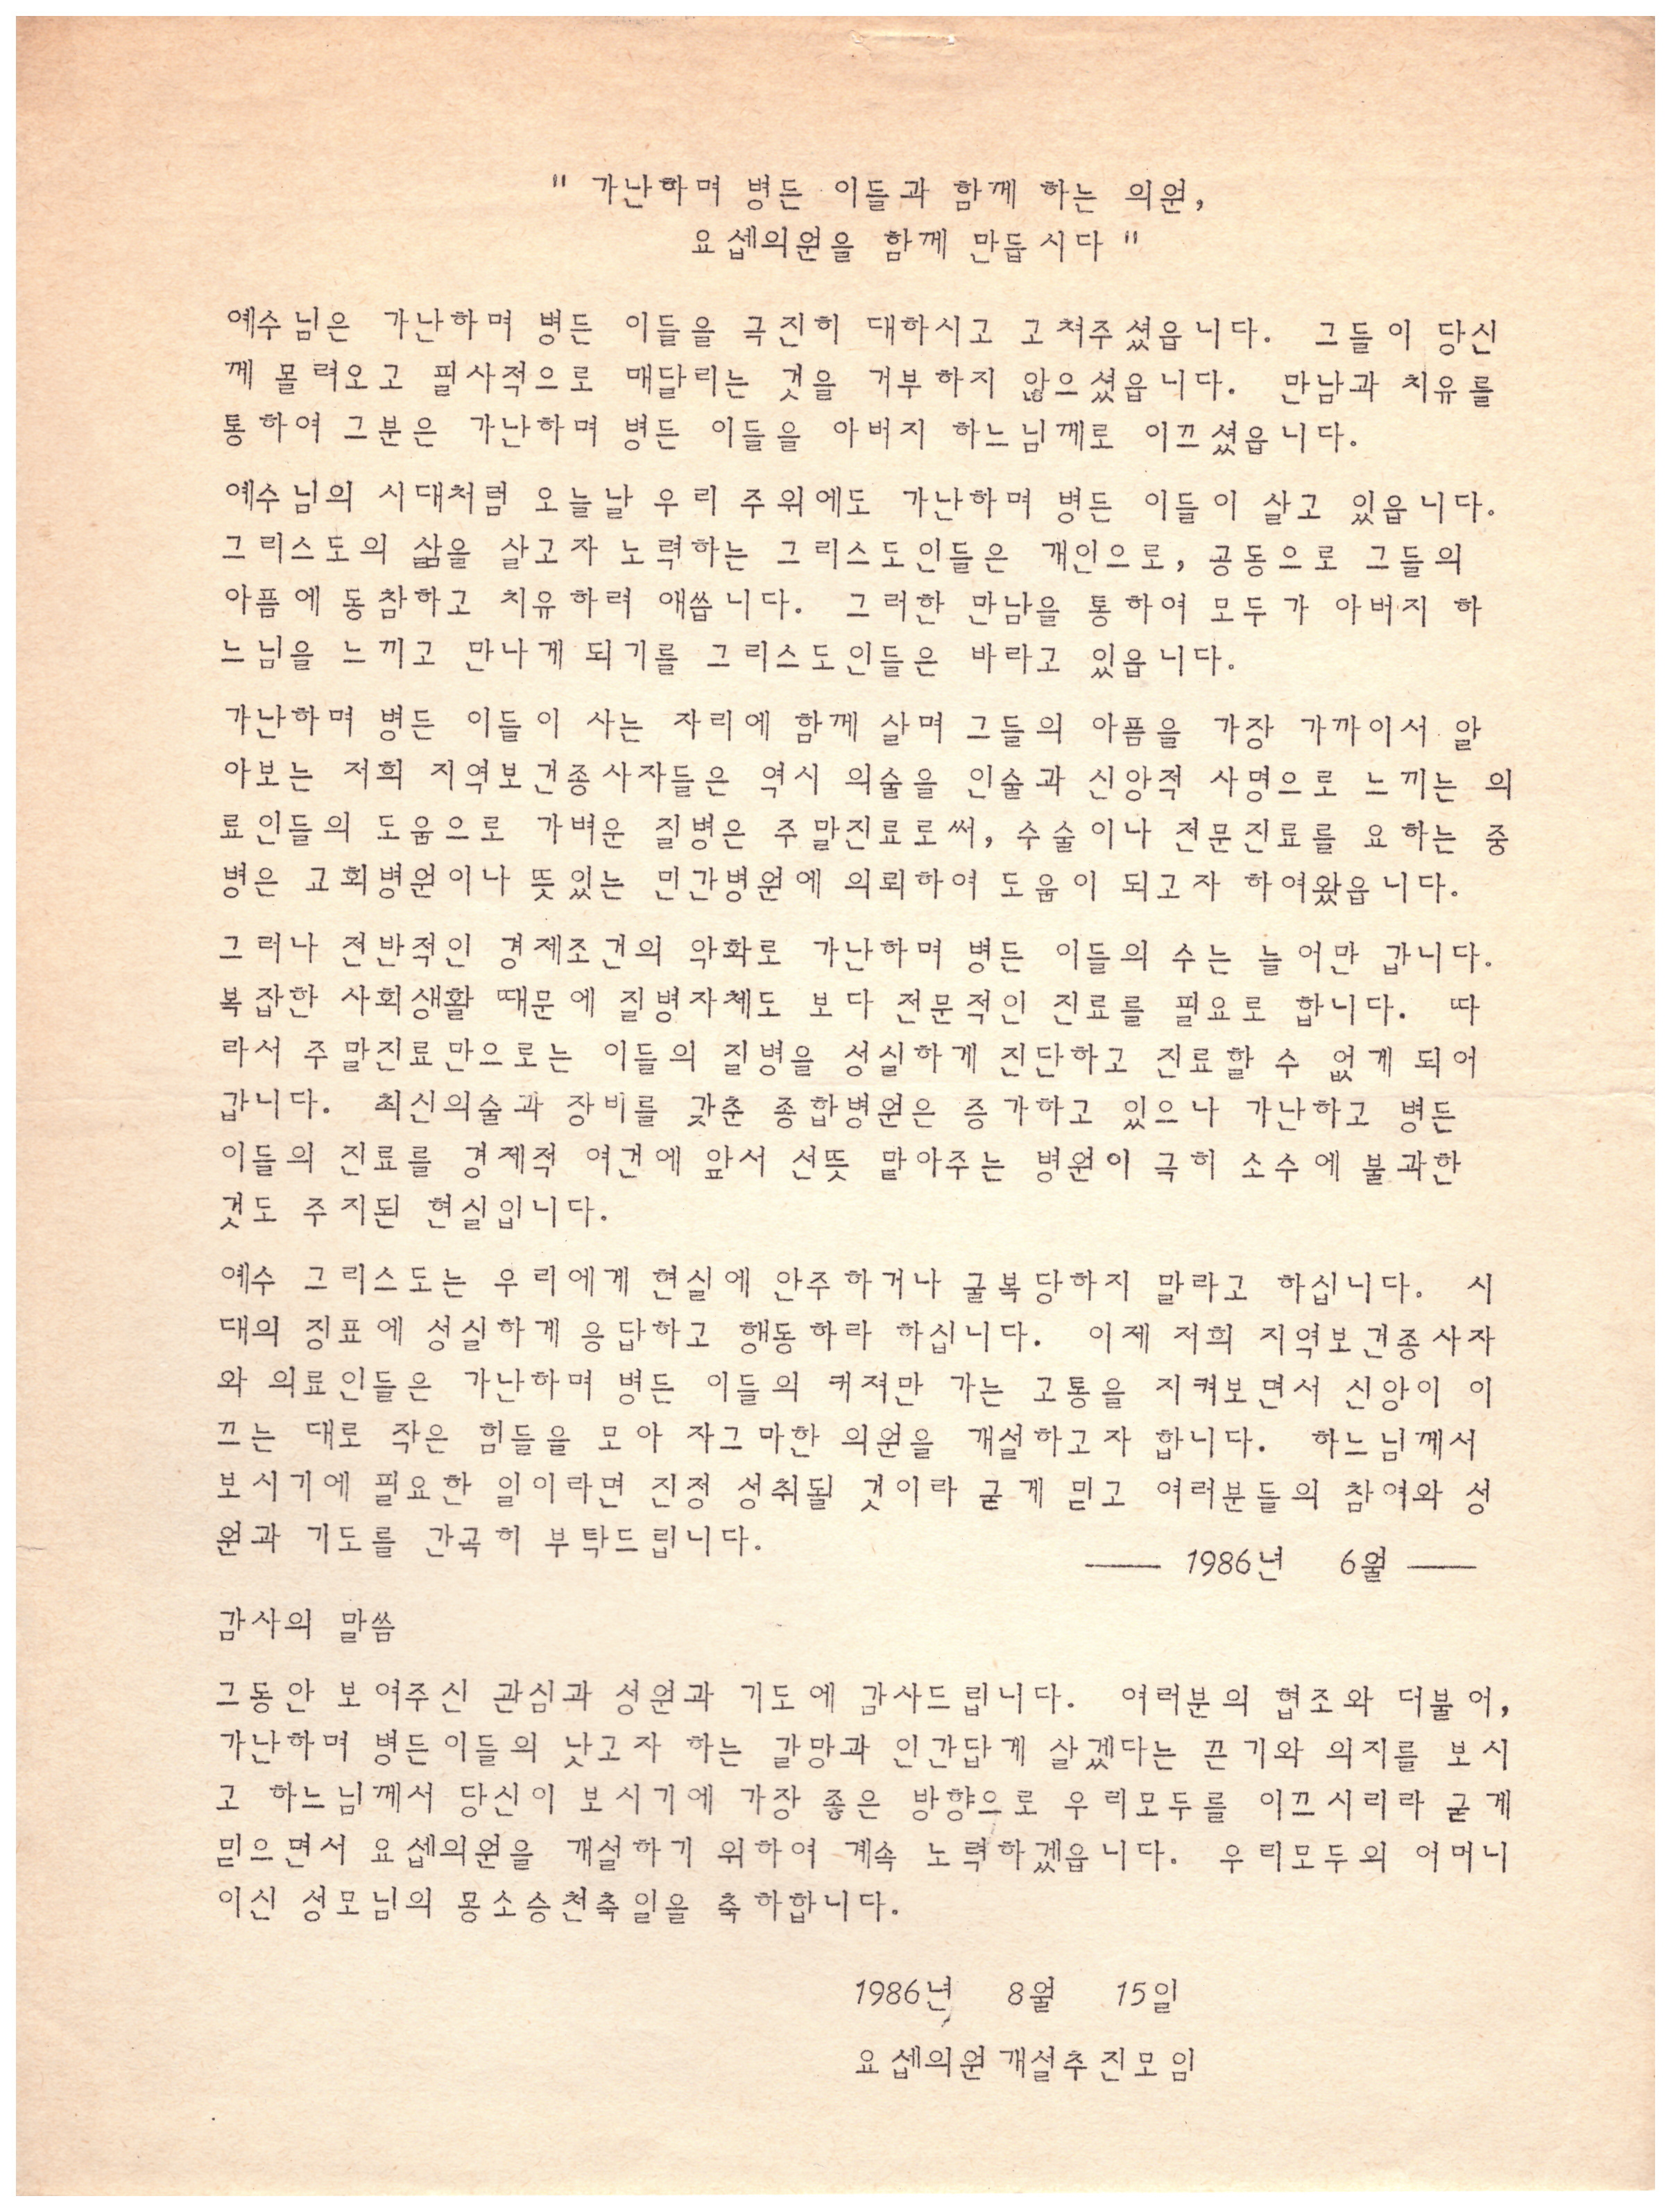 " 가난하며 병든 이들과 함께 하는 의원,
요셉의원을 함께 만듭시다 "
예수님은 가난하며 병든 이들을 극진히 대하시고 고쳐주셨읍니다. 그들이 당신
께 몰려오고 필사적으로 매달리는 것을 거부하지 않으셨읍니다. 만남과 치유를
통하여 그분은 가난하며 병든 이들을 아버지 하느님께로 이끄셨읍니다.
예수님의 시대처럼 오늘날 우리 주위에도 가난하며 병든 이들이 살고 있읍니다.
그리스도의 삶을 살고자 노력하는 그리스도인들은 개인으로, 공동으로 그들의
아픔에 동참하고 치유하려 애씁니다. 그러한 만남을 통하여 모두가 아버지 하
느님을 느끼고 만나게 되기를 그리스도인들은 바라고 있읍니다.
가난하며 병든 이들이 사는 자리에 함께 살며 그들의 아픔을 가장 가까이서 알
아보는 저희 지역보건종사자들은 역시 의술을 인술과 신앙적 사명으로 느끼는 의
료인들의 도움으로 가벼운 질병은 주말진료로써, 수술이나 전문진료를 요하는 중
병은 교회병원이나 뜻있는 민간병원에 의뢰하여 도움이 되고자 하여왔읍니다.
그러나 전반적인 경제조건의 악화로 가난하며 병든 이들의 수는 늘어만 갑니다.
복잡한 사회생활 때문에 질병자체도 보다 전문적인 진료를 필요로 합니다. 따
라서 주말진료만으로는 이들의 질병을 성실하게 진단하고 진료할 수 없게 되어
갑니다. 최신의술과 장비를 갖춘 종합병원은 증가하고 있으나 가난하고 병든
이들의 진료를 경제적 여건에 앞서 선뜻 맡아주는 병원이 극히 소수에 불과한
것도 주지된 현실입니다.
예수 그리스도는 우리에게 현실에 안주하거나 굴복당하지 말라고 하십니다. 시
대의 징표에 성실하게 응답하고 행동하라 하십니다. 이제 저희 지역보건종사자
와 의료인들은 가난하며 병든 이들의 커져만 가는 고통을 지켜보면서 신앙이 이
끄는 대로 작은 힘들을 모아 자그마한 의원을 개설하고자 합니다. 하느님께서
보시기에 필요한 일이라면 진정 성취될 것이라 굳게 믿고 여러분들의 참여와 성
원과 기도를 간곡히 부탁드립니다.
—— 1986년 6월 ——
감사의 말씀
그동안 보여주신 관심과 성원과 기도에 감사드립니다. 여러분의 협조와 더불어,
가난하며 병든이들의 낫고자 하는 갈망과 인간답게 살겠다는 끈기와 의지를 보시
고 하느님께서 당신이 보시기에 가장 좋은 방향으로 우리모두를 이끄시리라 굳게
믿으면서 요셉의원을 개설하기 위하여 계속 노력하겠읍니다. 우리모두의 어머니
이신 성모님의 몽소승천축일을 축하합니다.
1986년 8월 15일
요셉의원개설추진모임